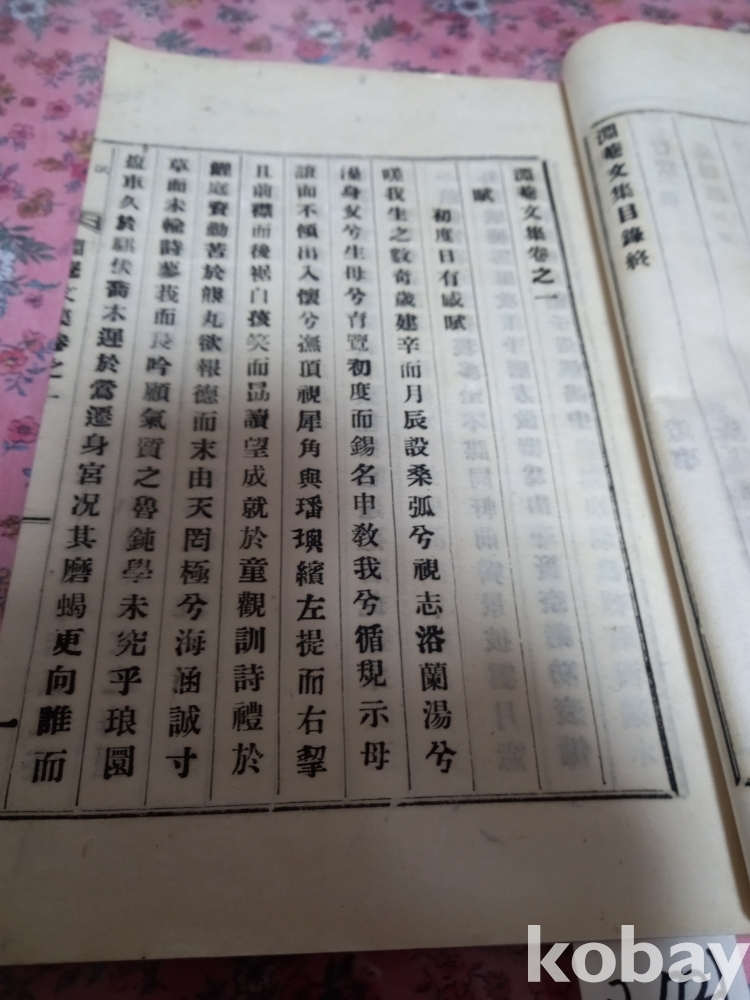 淵菴文集目錄終
淵菴文集卷之一
賦
初度日有感賦
嗟我生之數奇歲建辛而月辰設桑弧兮視志浴蘭湯兮
澡身父兮生母兮育覽初度而錫名申教我兮循規示母
誑而不傾出入懷兮撫頂視犀角與璠璵繽左提而右挈
且前襟而後裾自孩笑而勗讀望成就於童觀訓詩禮於
鯉庭賓勤苦於熊丸欲報德而末由天罔極兮海涵誠寸
草而未輸詩蓼莪而長吟顧氣質之魯鈍學未究乎琅園
車久於驥伏喬木遲於鶯遷身宮况其磨蝎更向誰而
淵菴文集卷之一
一
kobay